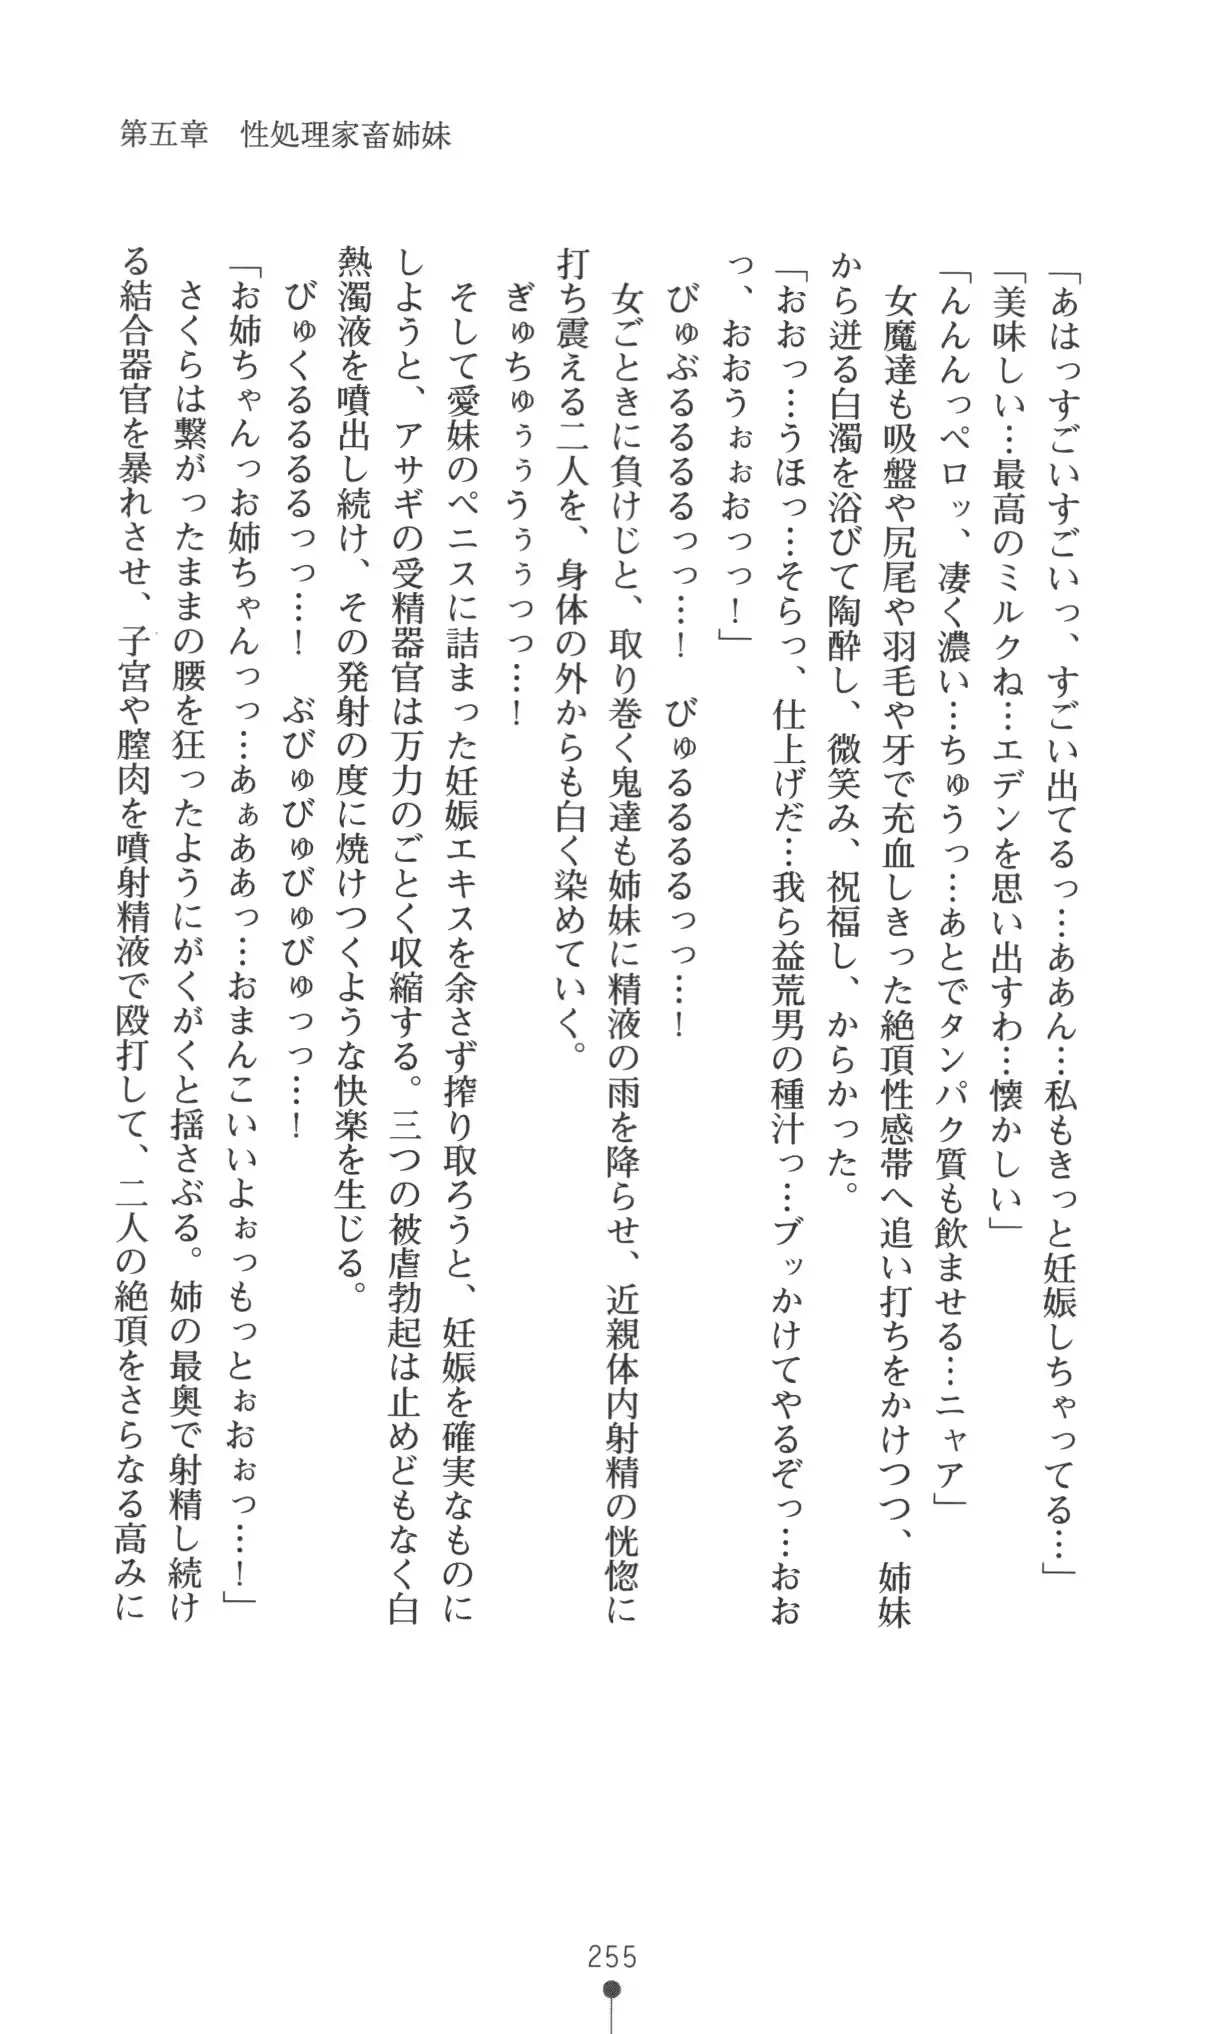 第五章　性処理家畜姉妹
「あはっすごいすごいっ、すごい出てるっ…ああん…私もきっと妊娠しちゃってる…」
「美味しい…最高のミルクね…エデンを思い出すわ…懐かしい」
「んんんっペロッ、凄く濃い…ちゅうっ…あとでタンパク質も飲ませる…ニャア」
　女魔達も吸盤や尻尾や羽毛や牙で充血しきった絶頂性感帯へ追い打ちをかけつつ、姉妹
から迸る白濁を浴びて陶酔し、微笑み、祝福し、からかった。
「おおっ…うほっ…そらっ、仕上げだ…我ら益荒男の種汁っ…ブッかけてやるぞっ…おお
っ、おおうぉぉおっっ！」
　びゅぶるるるるっっ…！　びゅるるるるっっ…！
　女ごときに負けじと、取り巻く鬼達も姉妹に精液の雨を降らせ、近親体内射精の恍惚に
打ち震える二人を、身体の外からも白く染めていく。
　ぎゅちゅぅぅうぅぅっっ…！
　そして愛妹のペニスに詰まった妊娠エキスを余さず搾り取ろうと、妊娠を確実なものに
しようと、アサギの受精器官は万力のごとく収縮する。三つの被虐勃起は止めどもなく白
熱濁液を噴出し続け、その発射の度に焼けつくような快楽を生じる。
　びゅくるるるるっっ…！　ぶびゅびゅびゅびゅっっ…！
「お姉ちゃんっお姉ちゃんっっ…あぁああっ…おまんこいいよぉっもっとぉおぉっ…！」
　さくらは繋がったままの腰を狂ったようにがくがくと揺さぶる。姉の最奥で射精し続け
る結合器官を暴れさせ、子宮や膣肉を噴射精液で殴打して、二人の絶頂をさらなる高みに
255